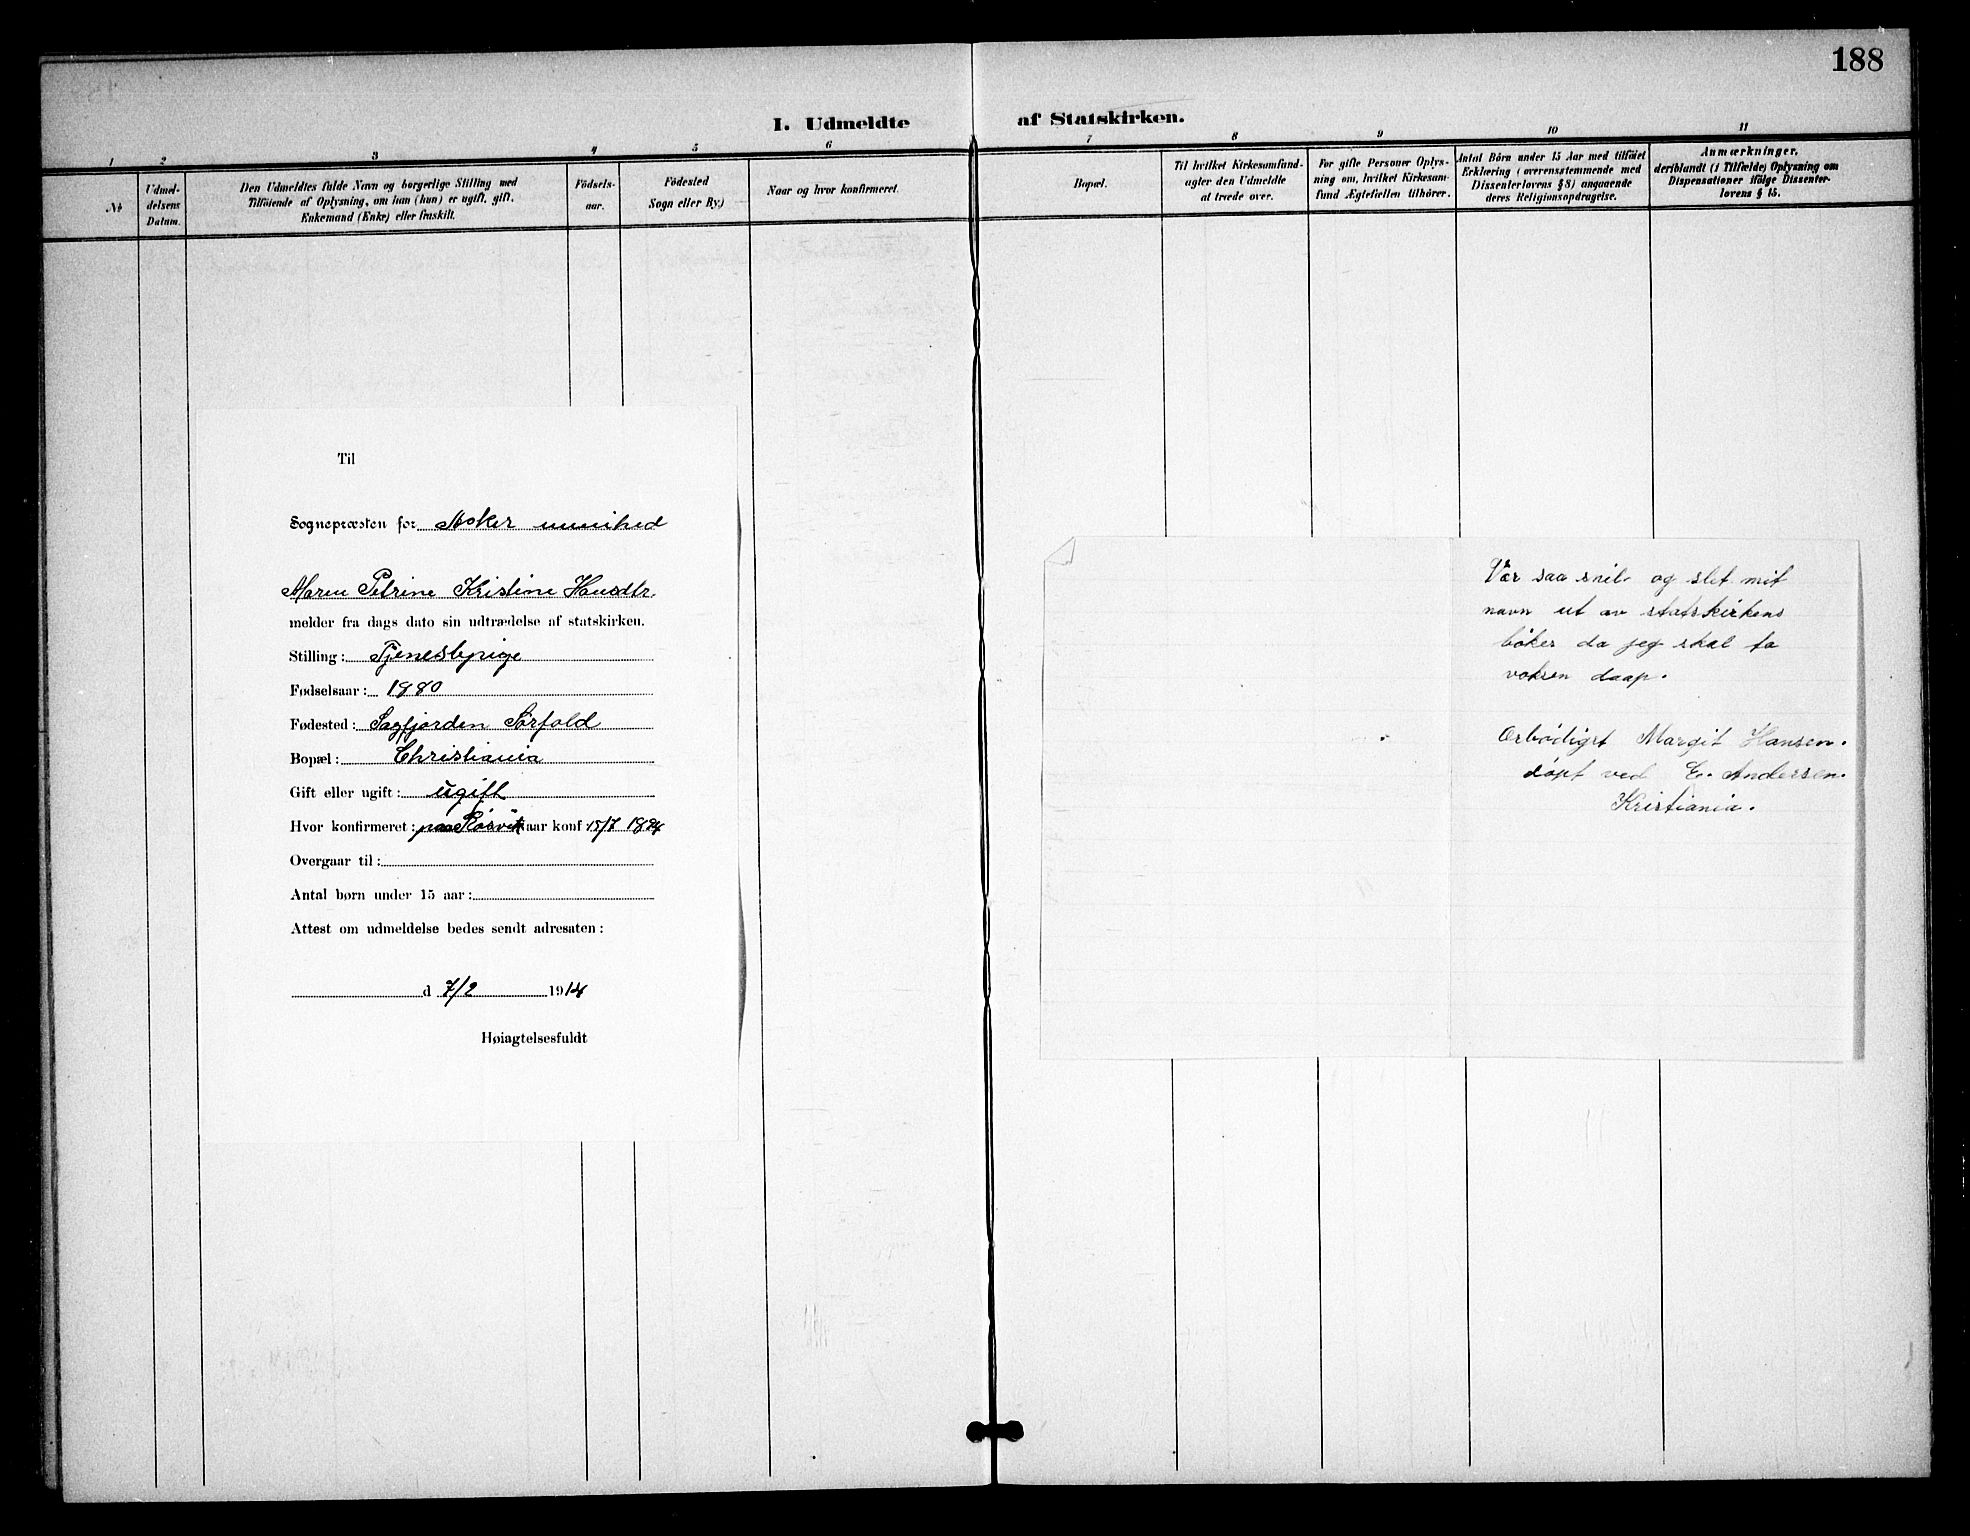 188
I. Udmeldte af Statskirken.
1 2 3 4 5 6 7 8 9 10 11
№
Udmel-
delsens
Datum.
Den Udmeldtes fulde Navn og borgerlige Stilling med
Tilföiende af Oplysning, om han (hun) er ugift, gift,
Enkemand (Enke) eller fraskilt.
Födsels-
aar.
Födested
Sogn eller By.)
Naar og hvor konfirmeret.
Bopæl.
Til hvilket Kirkesamfund-
agter den Udmeldte
at træde over.
For gifte Personer Oplys-
ning om, hvilket Kirkesam-
fund Ægtefællen tilhörer.
Antal Börn under 15 Aar med tilföiet
Erklæring (overensstemmende med
Dissenterlovens § 8) angaaende
deres Religionsopdragelse.
Anmærkninger.
deriblandt (i Tilfælde) Oplysning om
Dispensationer ifölge Dissenter-
lovens § 15.
Til
Sognepræsten for Asker
Maren Petrine Kristine Hansdtr.
melder fra dags dato sin udtrædelse af statskirken.
Stilling: Tjenestepige
Fødselsaar: 1880
Fødested: Sagfjorden Sørfold
Bopæl: Christiania
Gift eller ugift: ugift
Hvor konfirmeret: paa Rørvik aar konf 15/7 1894
Overgaar til:
Antal børn under 15 aar:
Attest om udmeldelse bedes sendt adresaten:
d 7/2 1914
Høiagtelsesfuldt
Vær saa snil og slet mit
navn ut av statskirkens
bøker da jeg skal ta
voksen daap.
Ærbødigst Margit Hansen.
døpt ved E. Andersen.
Kristiania.